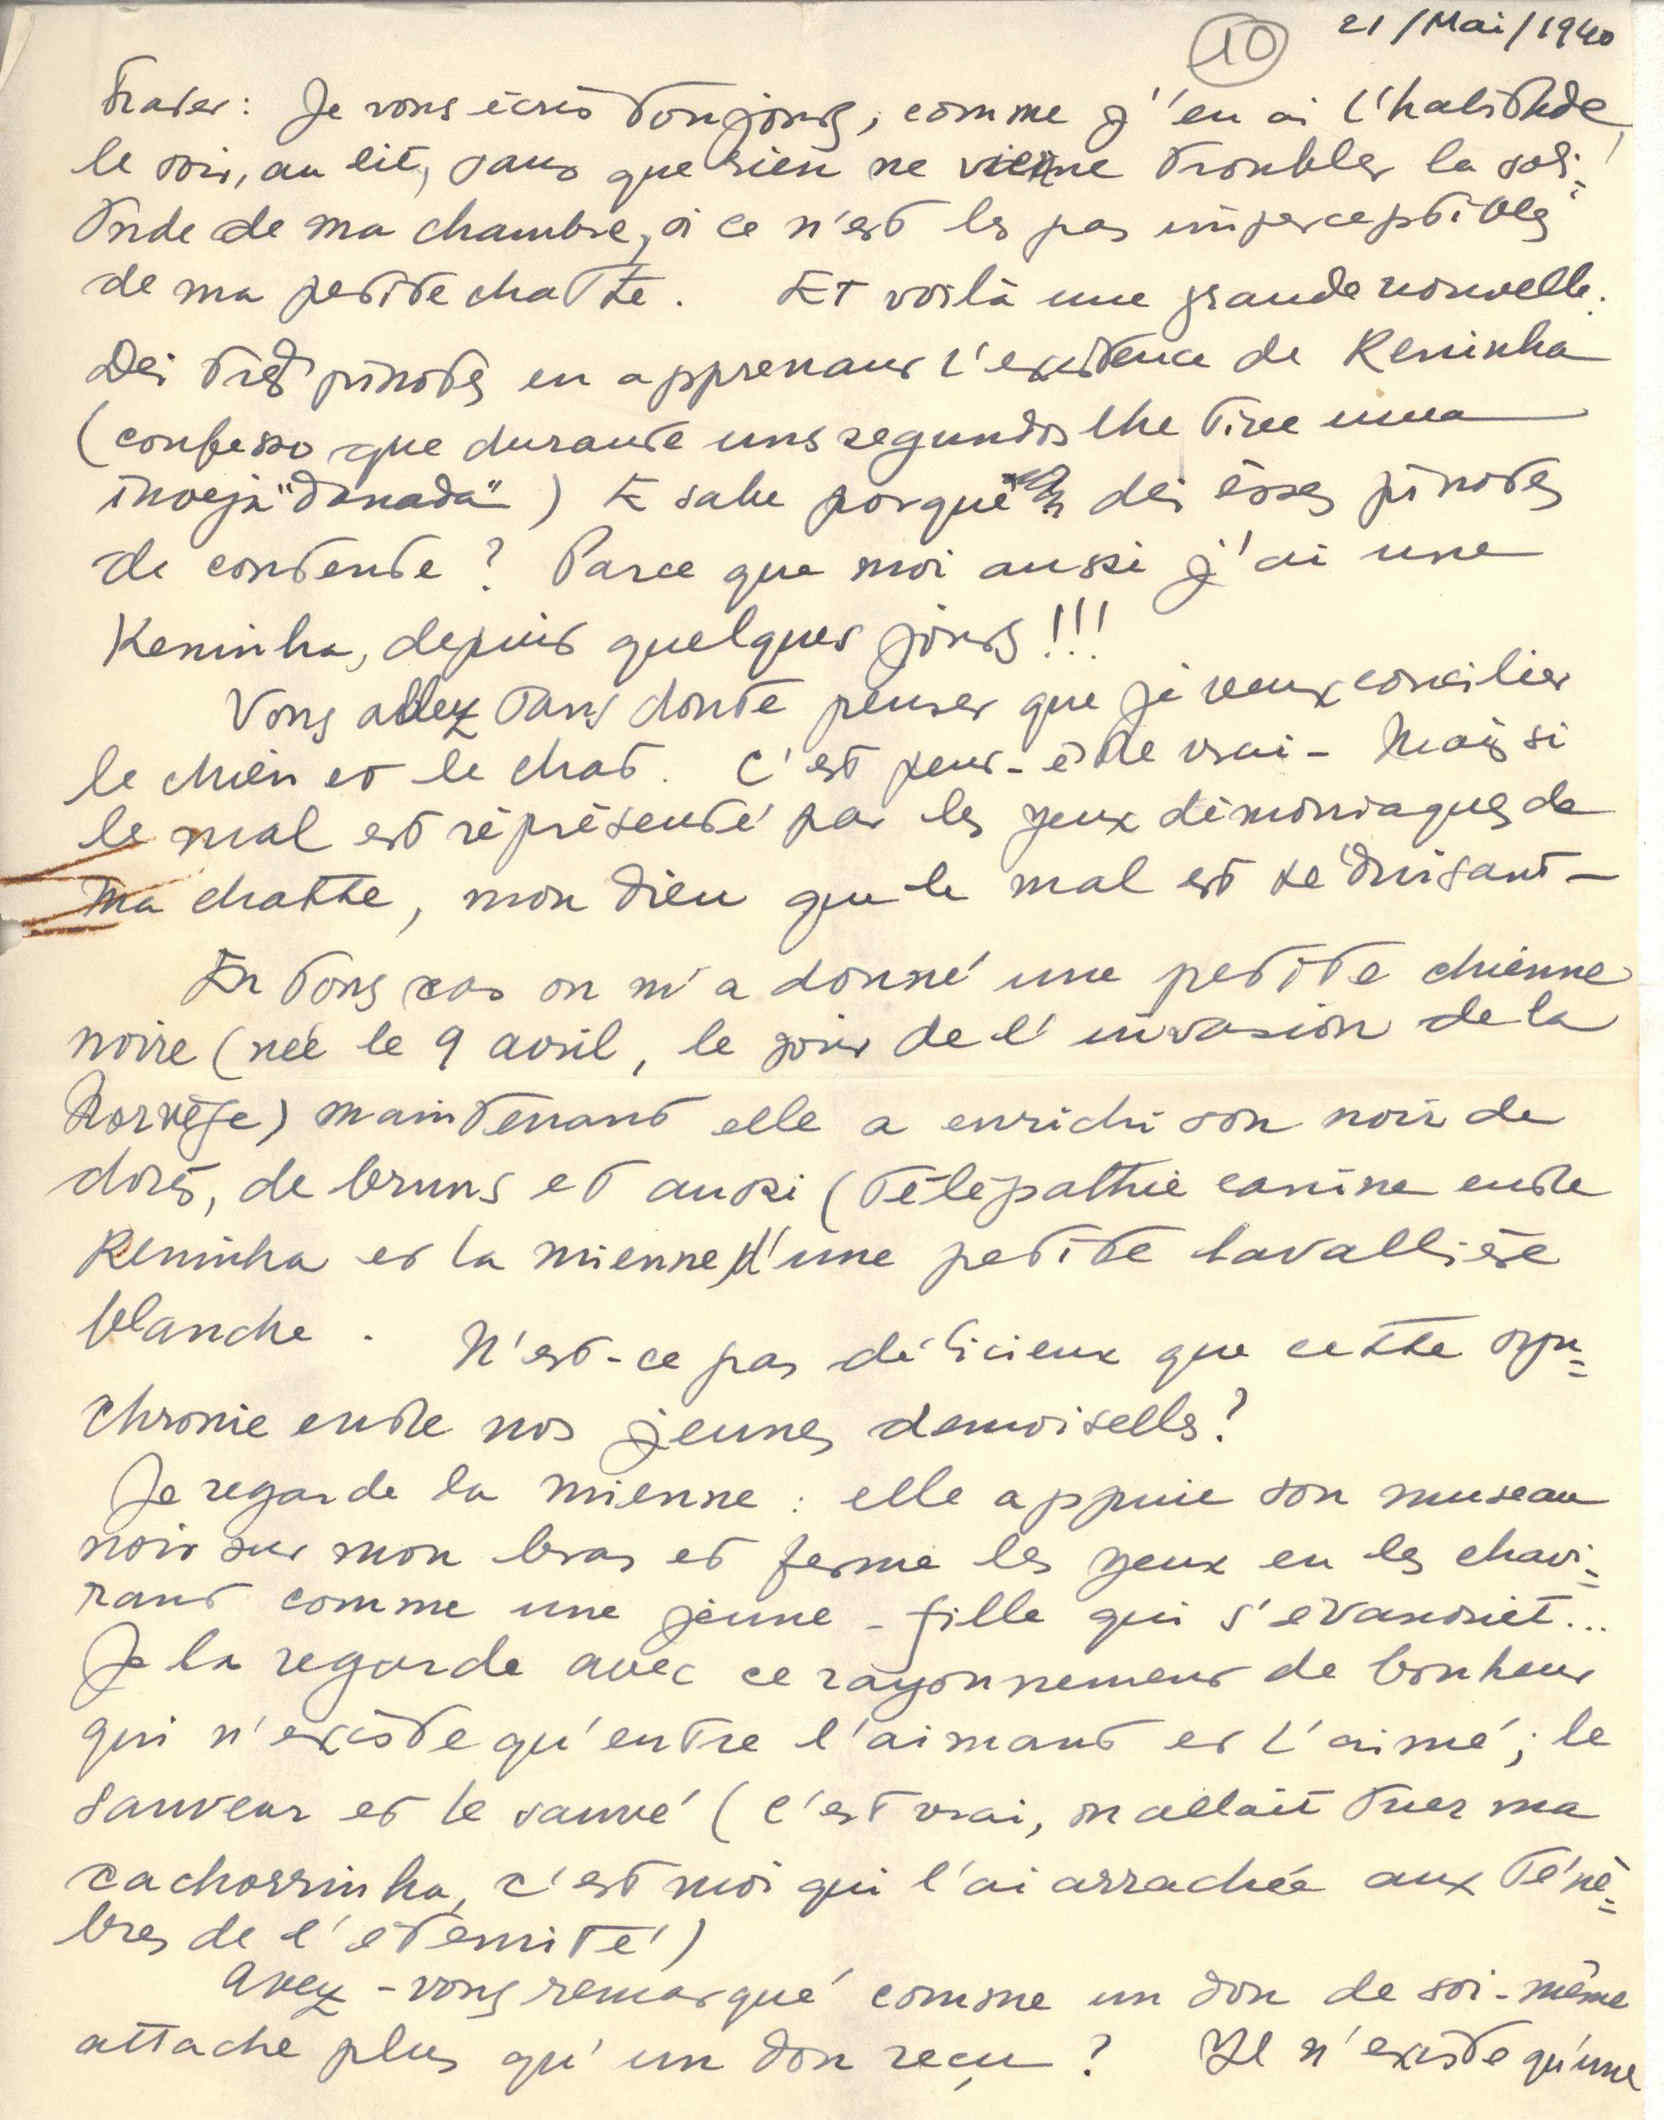 10 21/Mai/1940
Frater: Je vous écris toujours, comme j'en ai l'habitude,
le soir, au lit, sans que rien ne vienne troubler la soli=
tude de ma chambre, si ce n'est les pas imperceptibles
de ma petite chatte. Et voilà une grande nouvelle.
Dei três pinotes en apprenant l'existence de Keninha
(confesso que durante uns segundos lhe tive uma
inveja "danada") E sabe porquê dei êsses pinotes
de contente? Parce que moi aussi j'ai une
Keninha, depuis quelques jours!!!
Vous allez sans doute penser que je veux concilier
le chien et le chat. C'est peut-être vrai - Mais si
le mal est réprésenté par les yeux démoniaques de
ma chatte, mon Dieu que le mal est séduisant -
En tous cas on m'a donné une petite chienne
noire (née le 9 avril, le jour de l'invasion de la
Norvège) maintenant elle a enrichi son noir de
dorés, de bruns et aussi (télépathie canine entre
Keninha et la mienne) d'une petite lavallière
blanche. N'est-ce pas délicieux que cette syn=
chronie entre nos jeunes demoiselles?
Je regarde la mienne: elle appuie son museau
noir sur mon bras et ferme les yeux en les chavi=
rant comme une jeune-fille qui s'évanouit...
Je la regarde avec ce rayonnement de bonheur
qui n'existe qu'entre l'aimant et l'aimé; le
sauveur et le sauvé (c'est vrai, on allait tuer ma
cachorrinha, c'est moi qui l'ai arrachée aux ténè=
bres de l'éternité)
Avez-vous remarqué comme un don de soi-même
attache plus qu'un don reçu? Il n'existe qu'une